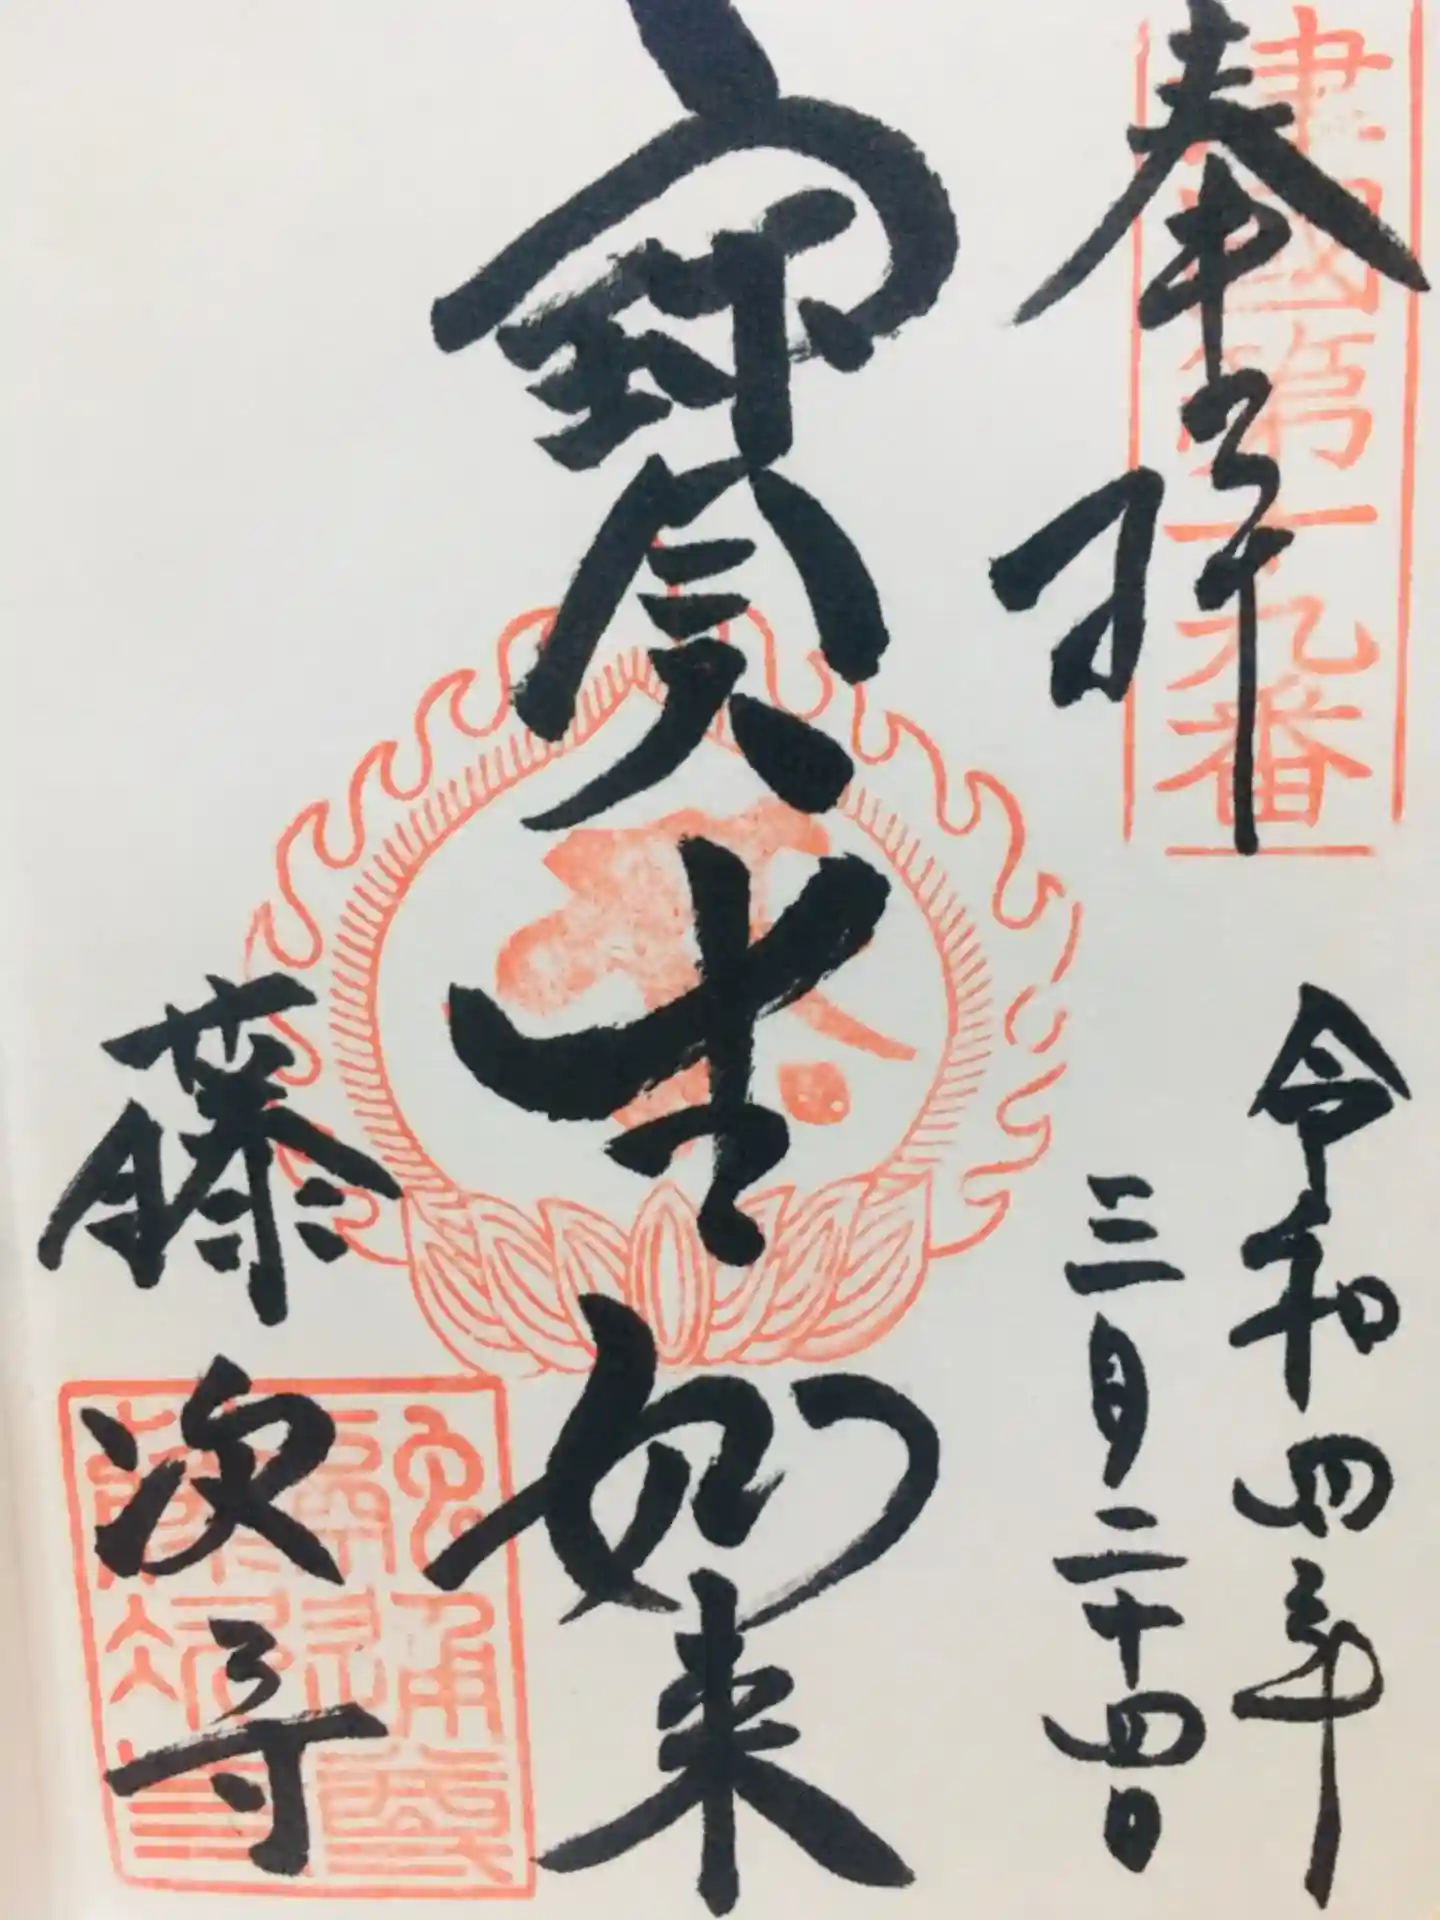 津國第十九番
奉拝
令和四年
三月二十四日
寶生如来
藤次寺